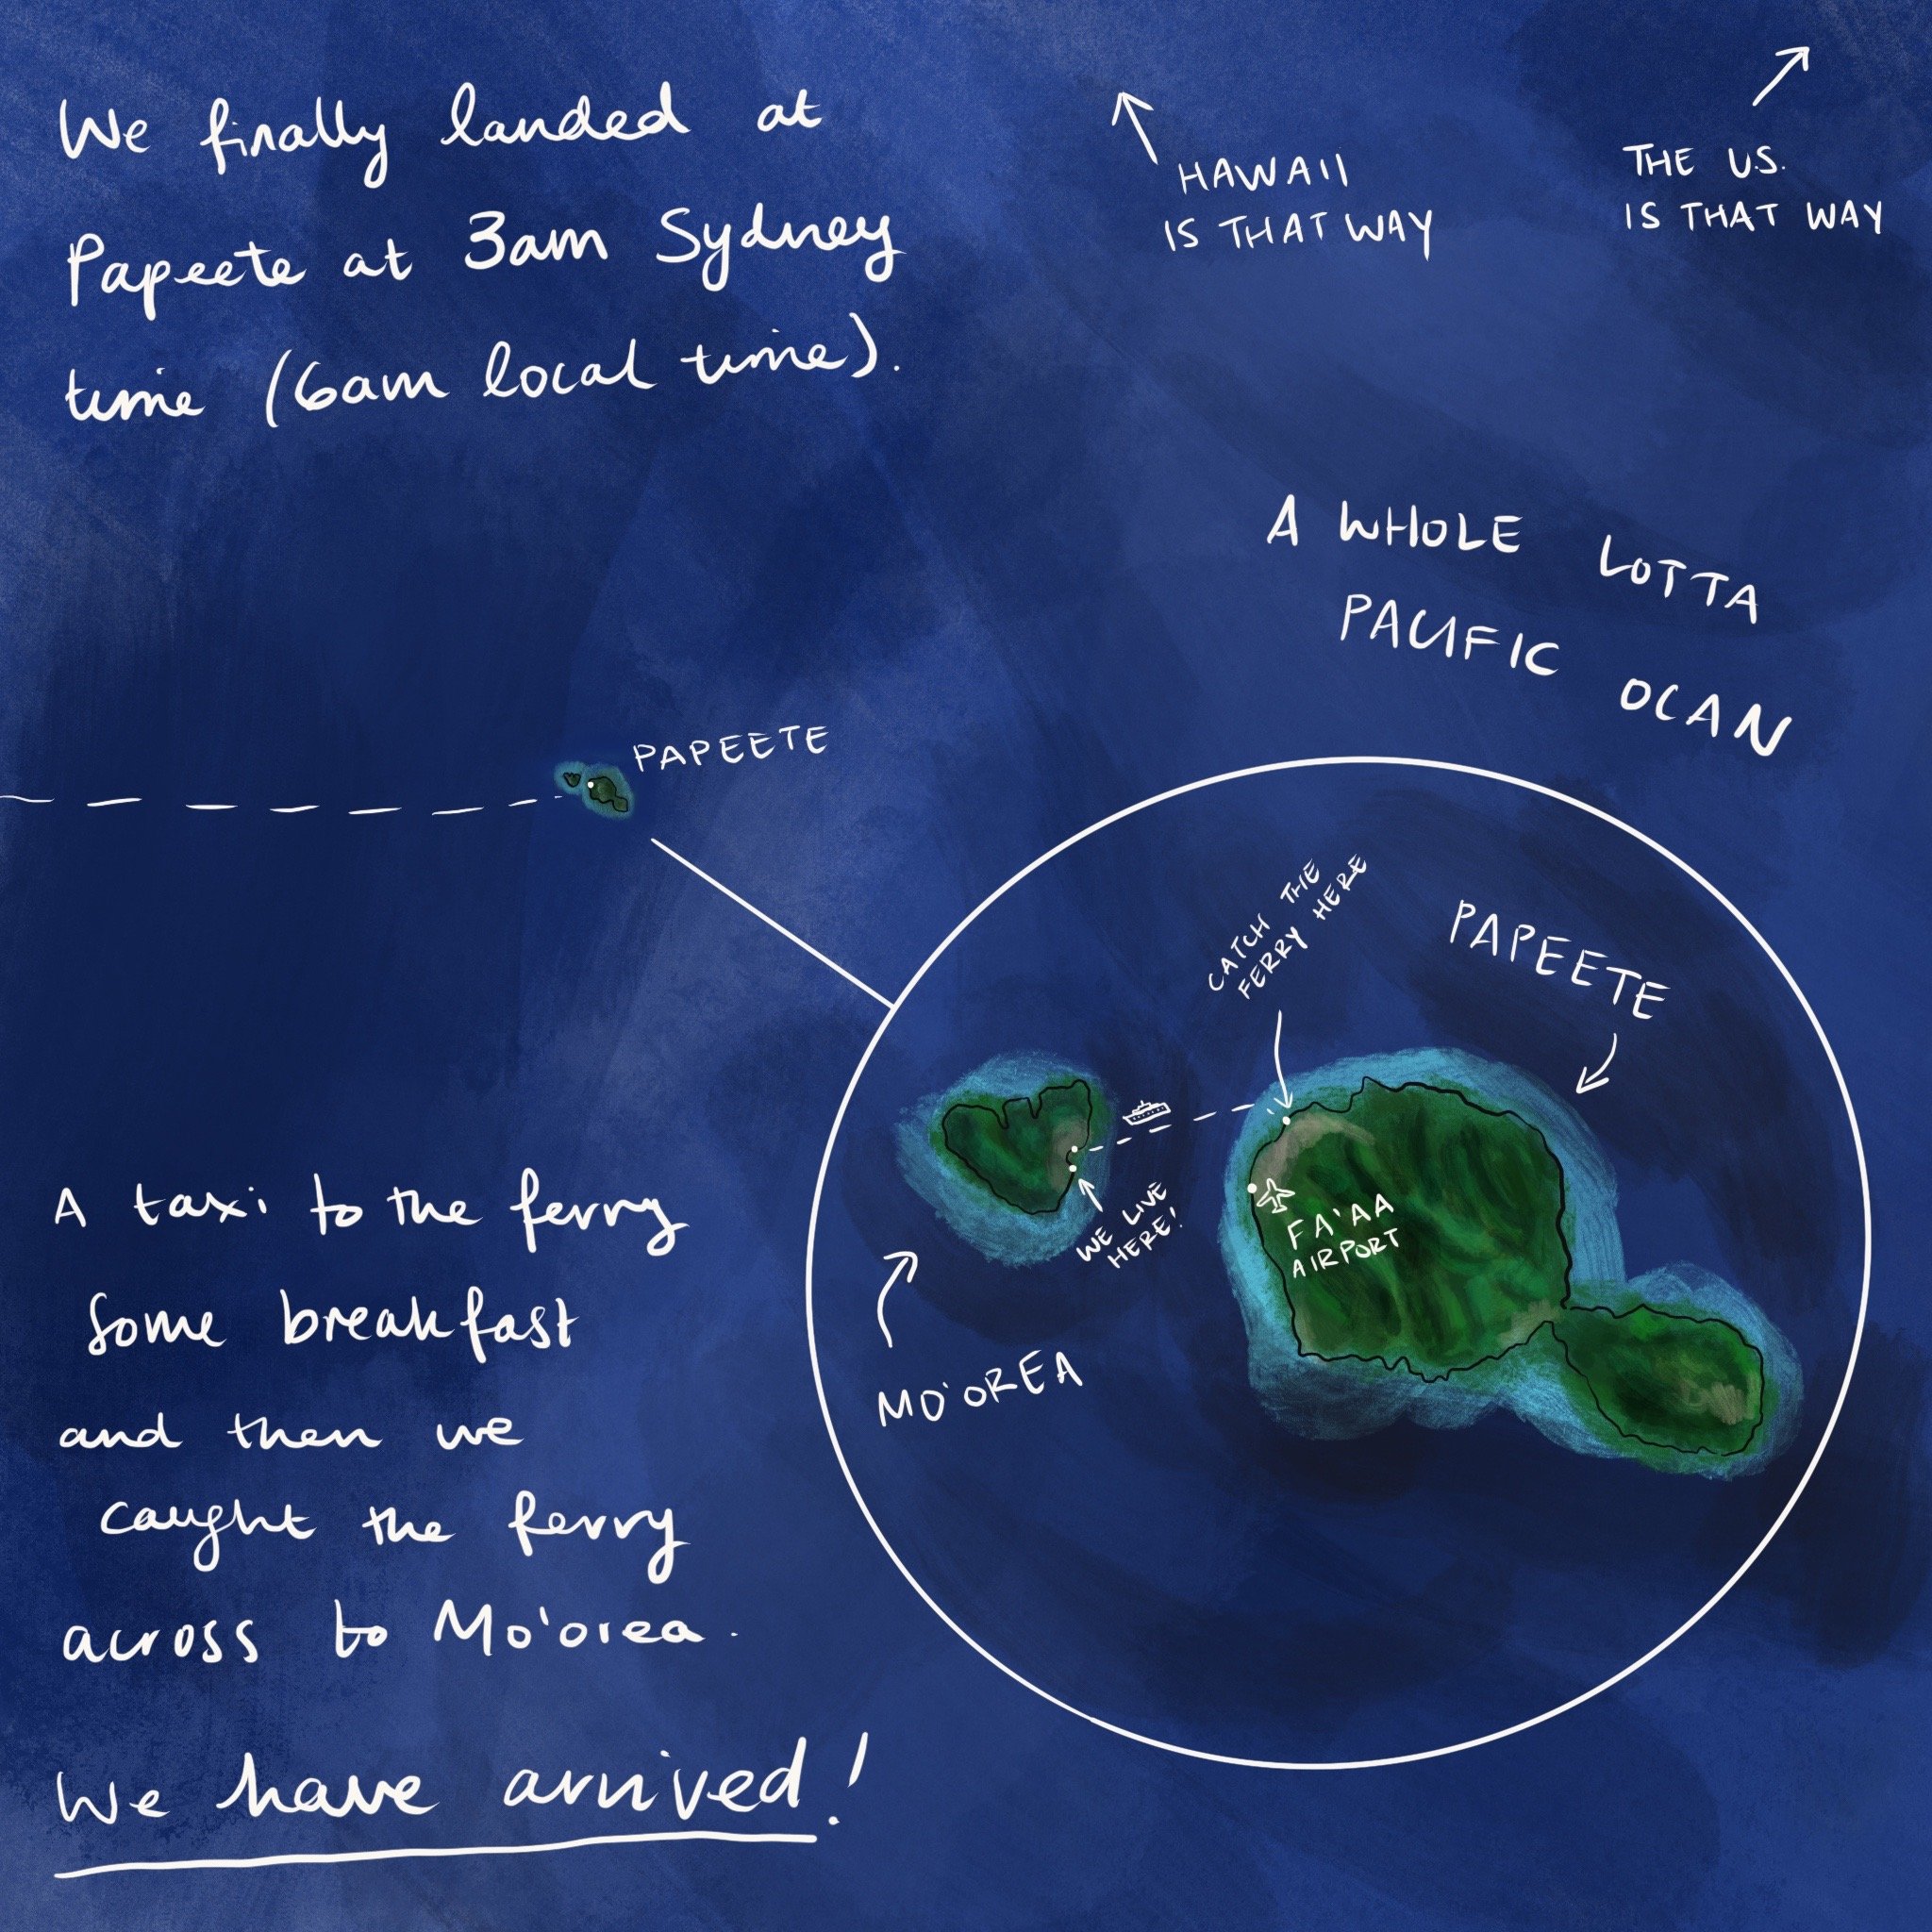 We finally landed at
Papeete at 3am Sydney
time (6am local time).
HAWAII
IS THAT WAY
THE U.S.
IS THAT WAY
A WHOLE LOTTA
PACIFIC OCAN
PAPEETE
CATCH THE
FERRY HERE
PAPEETE
WE LIVE
HERE!
FA'AA
AIRPORT
MO'OREA
A taxi to the ferry
some breakfast
and then we
caught the ferry
across to Mo'orea.
We have arrived!